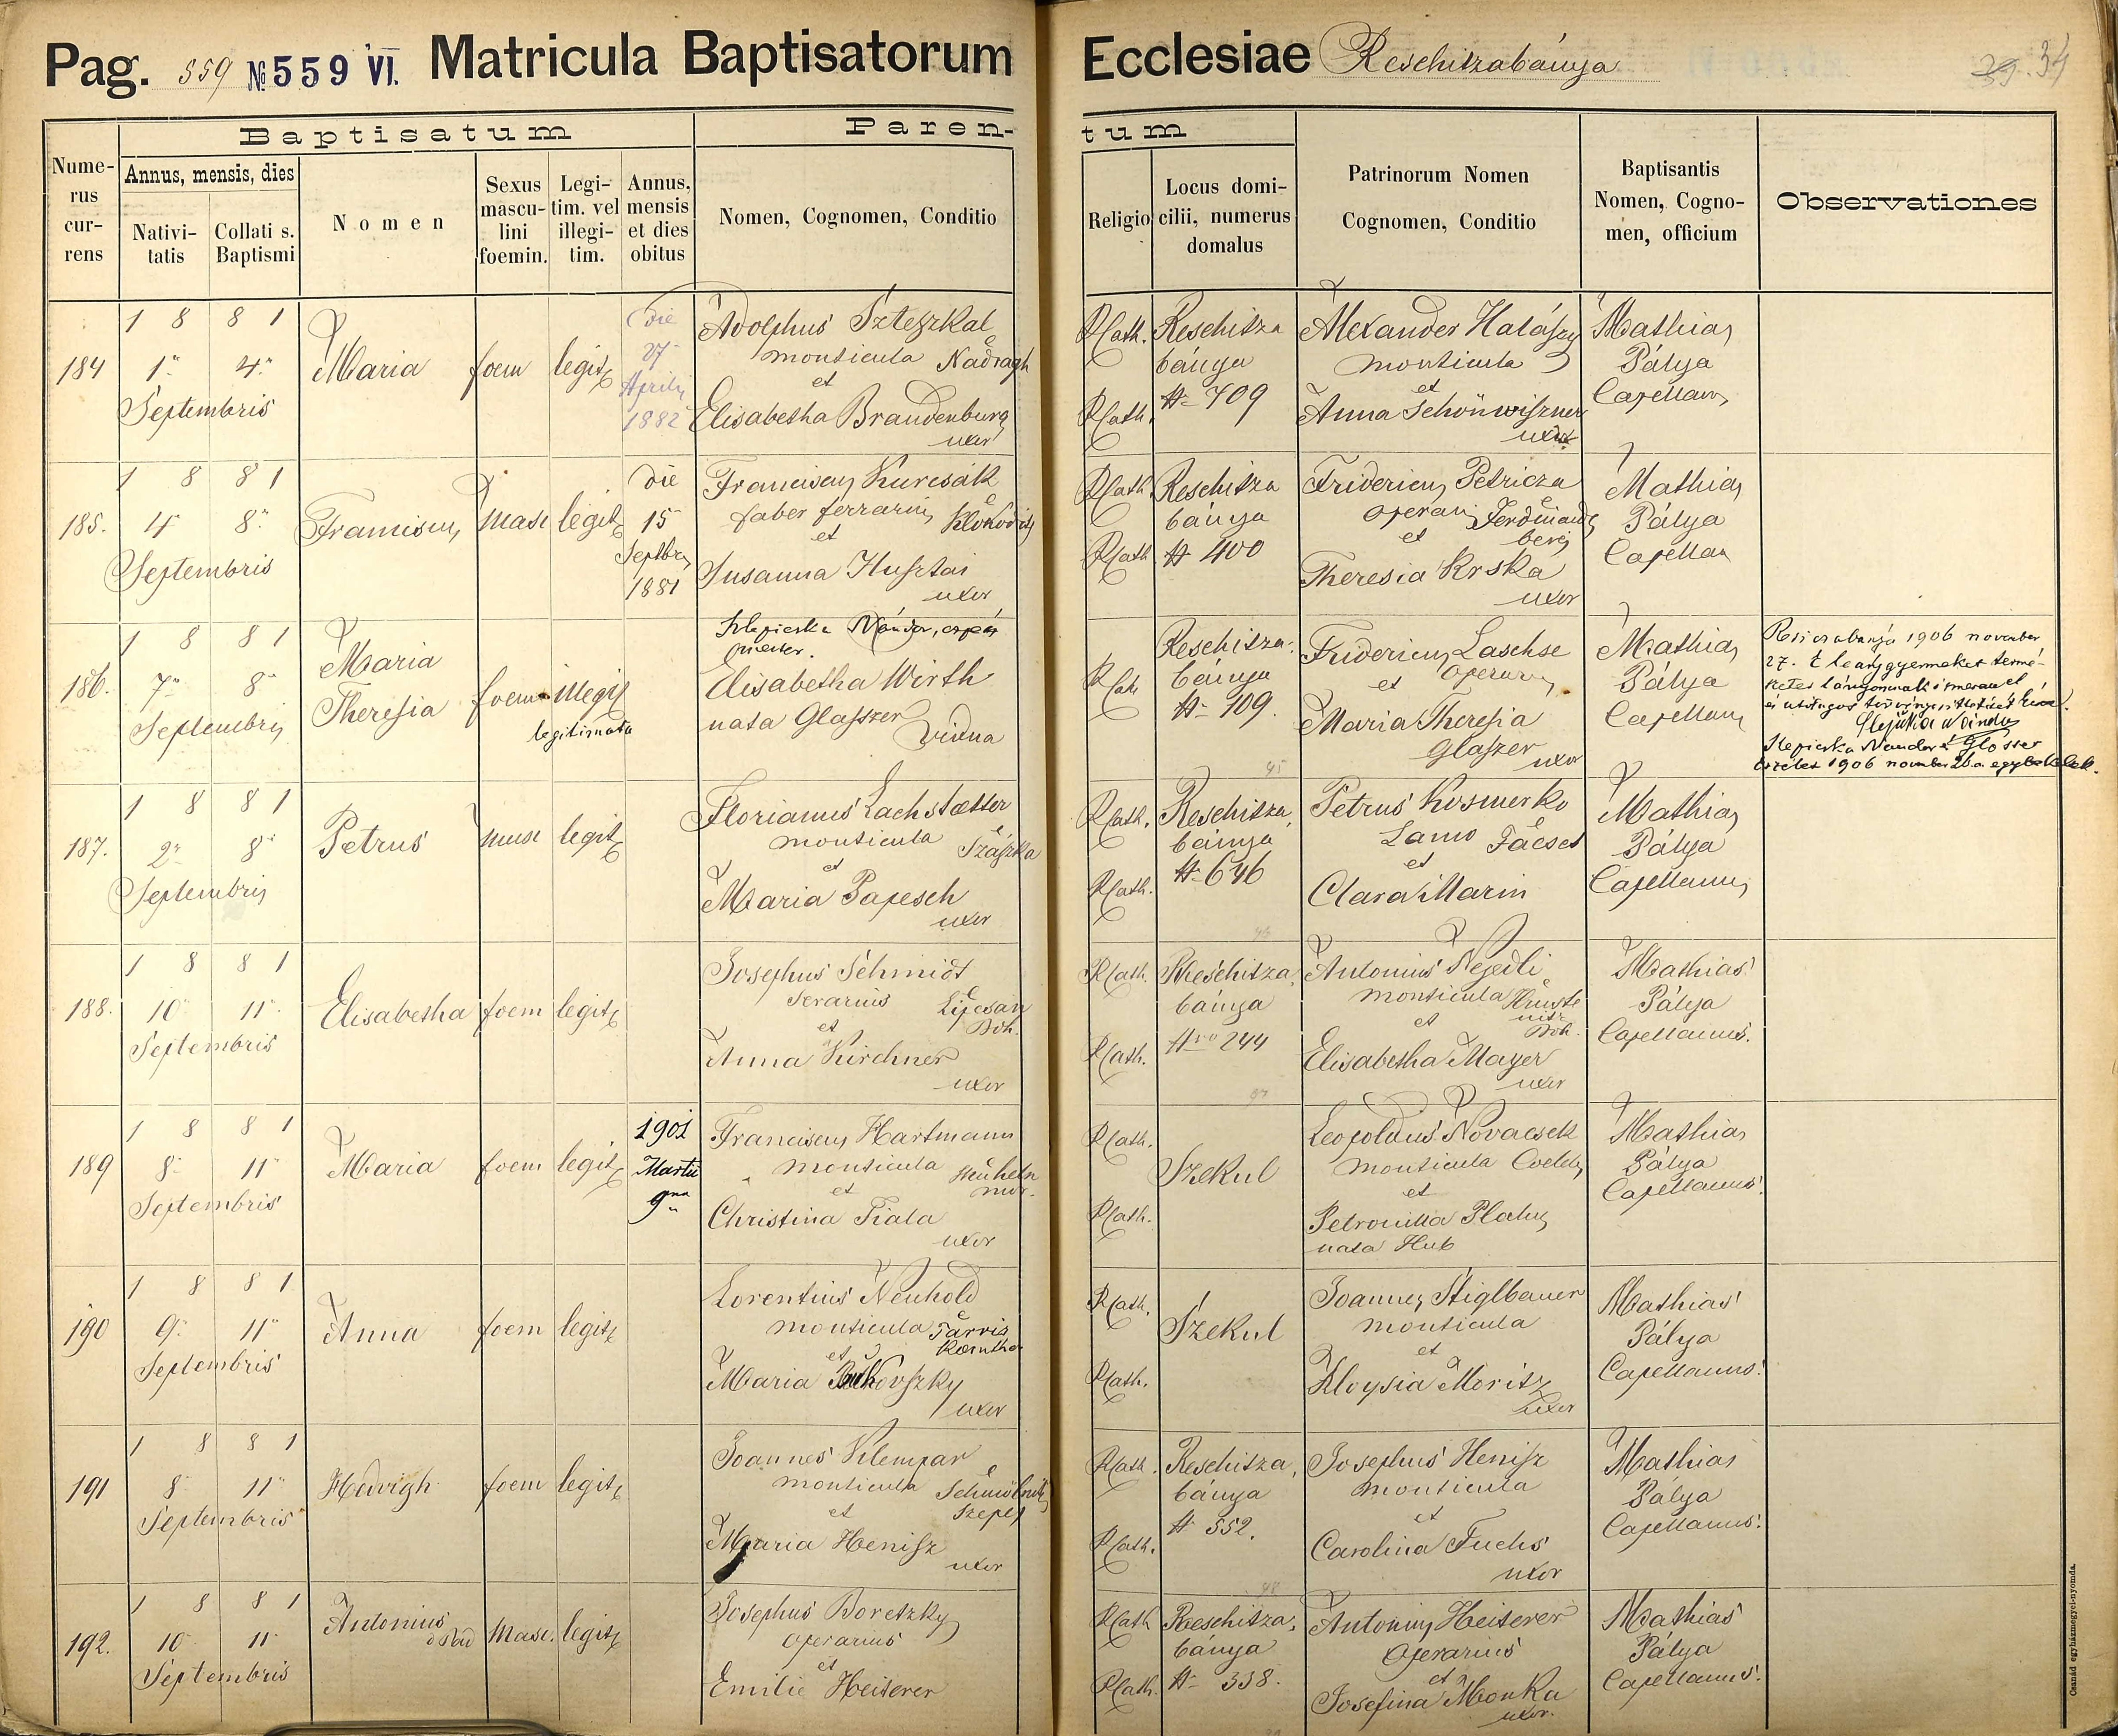 Pag. 559 № 559 VI. Matricula Baptisatorum Ecclesiae Reschitzabánya
34
Baptisatum
Parentum
Numerus currens
Annus, mensis, dies
Nativitatis
Collati s. Baptismi
Nomen
Sexus masculini foemin.
Legitim. vel illegitim.
Annus, mensis et dies obitus
Nomen, Cognomen, Conditio
Religio
Locus domicilii, numerus domalus
Patrinorum Nomen Cognomen, Conditio
Baptisantis Nomen, Cognomen, officium
Observationes
184
1 8 8 1
1. 4.
Septembris
Maria
foem
legit
Die
27
Aprilis
1882
Adolphus Szteszkal
monticula Nadragh
et
Elisabetha Brandenburg
uxor
RCath.
RCath.
Reschitza
bánya
№ 709
Alexander Halászy
monticula
et
Anna Schönwiszner
uxor
Mathias
Pálya
Capellan
185.
1 8 8 1
4 8.
Septembris
Franciscus
Masc
legit
Die
15
Septbr
1881
Franciscus Kurcsák
faber ferrarius
et
Susanna Husztai
uxor
RCath.
RCath
Reschitza
bánya
№ 400
Fridericus Petricza
operari Ferdinands
et berg
Theresia Krska
uxor
Mathias
Pálya
Capellan
186.
1 8 8 1
7. 8.
Septembris
Maria
Theresia
foem
illegit
legitimata
Nándor,
Elisabetha Wirth
nata Glaszer
Vidua
RCath
Reschitza
bánya
№ 109.
Fridericus Laschse
et Operarius
Maria Theresia
Glaszer uxor
Mathias
Pálya
Capellan
1906 november
27. E leánygyermeket termé-
Nándor
Nandor
1906 november
187.
1 8 8 1
2. 8.
Septembris
Petrus
Masc
legit
Florianus Lachstætter
monticula Szászka
et
Maria Papesch
uxor
RCath.
RCath.
Reschitza
bánya
№ 646
Petrus Kosmerko
Lanio Facset
et
Clara Marin
Mathias
Pálya
Capellanus
188.
1 8 8 1
10 11
Septembris
Elisabetha
foem
legit
Josephus Schmidt
Serarius
et Boh.
Anna Kirchner
uxor
RCath.
RCath.
Reschitza
bánya
№ 244
Antonius Nejedli
monticula
et Boh.
Elisabetha Mayer
uxor
Mathias
Pálya
Capellanus.
189
1 8 8 1
8 11
Septembris
Maria
foem
legit
1901
Martii
9na
Franciscus Hartmann
monticula
et
Christina Fiala
uxor
RCath.
RCath.
Szekul
Leopoldus Novacsek
monticula
et
Petronilla
nata Hub
Mathias
Pálya
Capellanus.
190
1 8 8 1
9. 11
Septembris
Anna
foem
legit
Lorentius Neuhold
monticula Tarvis
et
Maria
uxor
RCath.
RCath.
Szekul
Joannes Stiglbauer
monticula
et
Aloysia Moritz
uxor
Mathias
Pálya
Capellanus.
191
1 8 8 1
8 11
Septembris
Hedvigh
foem
legit
Joannes Klempar
monticula Schmölnitz
et Szepes
Maria Henisz
uxor
RCath.
RCath.
Reschitza,
bánya
№ 552.
Josephus Henisz
monticula
et
Carolina Fuchs
uxor
Mathias
Pálya
Capellanus.
192.
1 8 8 1
10 11
Septembris
Antonius
Masc.
legit
Josephus Boretzky
operarius
et
Emilie Heiterer
RCath
RCath.
Reschitza,
bánya
№ 338.
Antonius Heiterer
Operarius
et
Josefina Monka
uxor.
Mathias
Pálya
Capellanus.
Csanád egyházmegyei-nyomda.